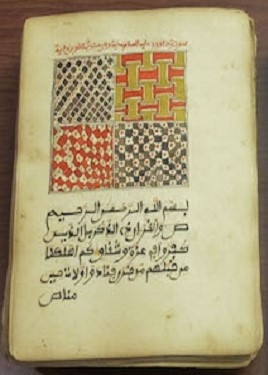 سورة داوود عليه السلام
بسم الله الرحمن الرحيم
ص والقرءان ذي الذكر بل الذين
كفروا في عزة وشقاق كم اهلكنا
من قبلهم من قرن فنادوا ولات حين
مناص